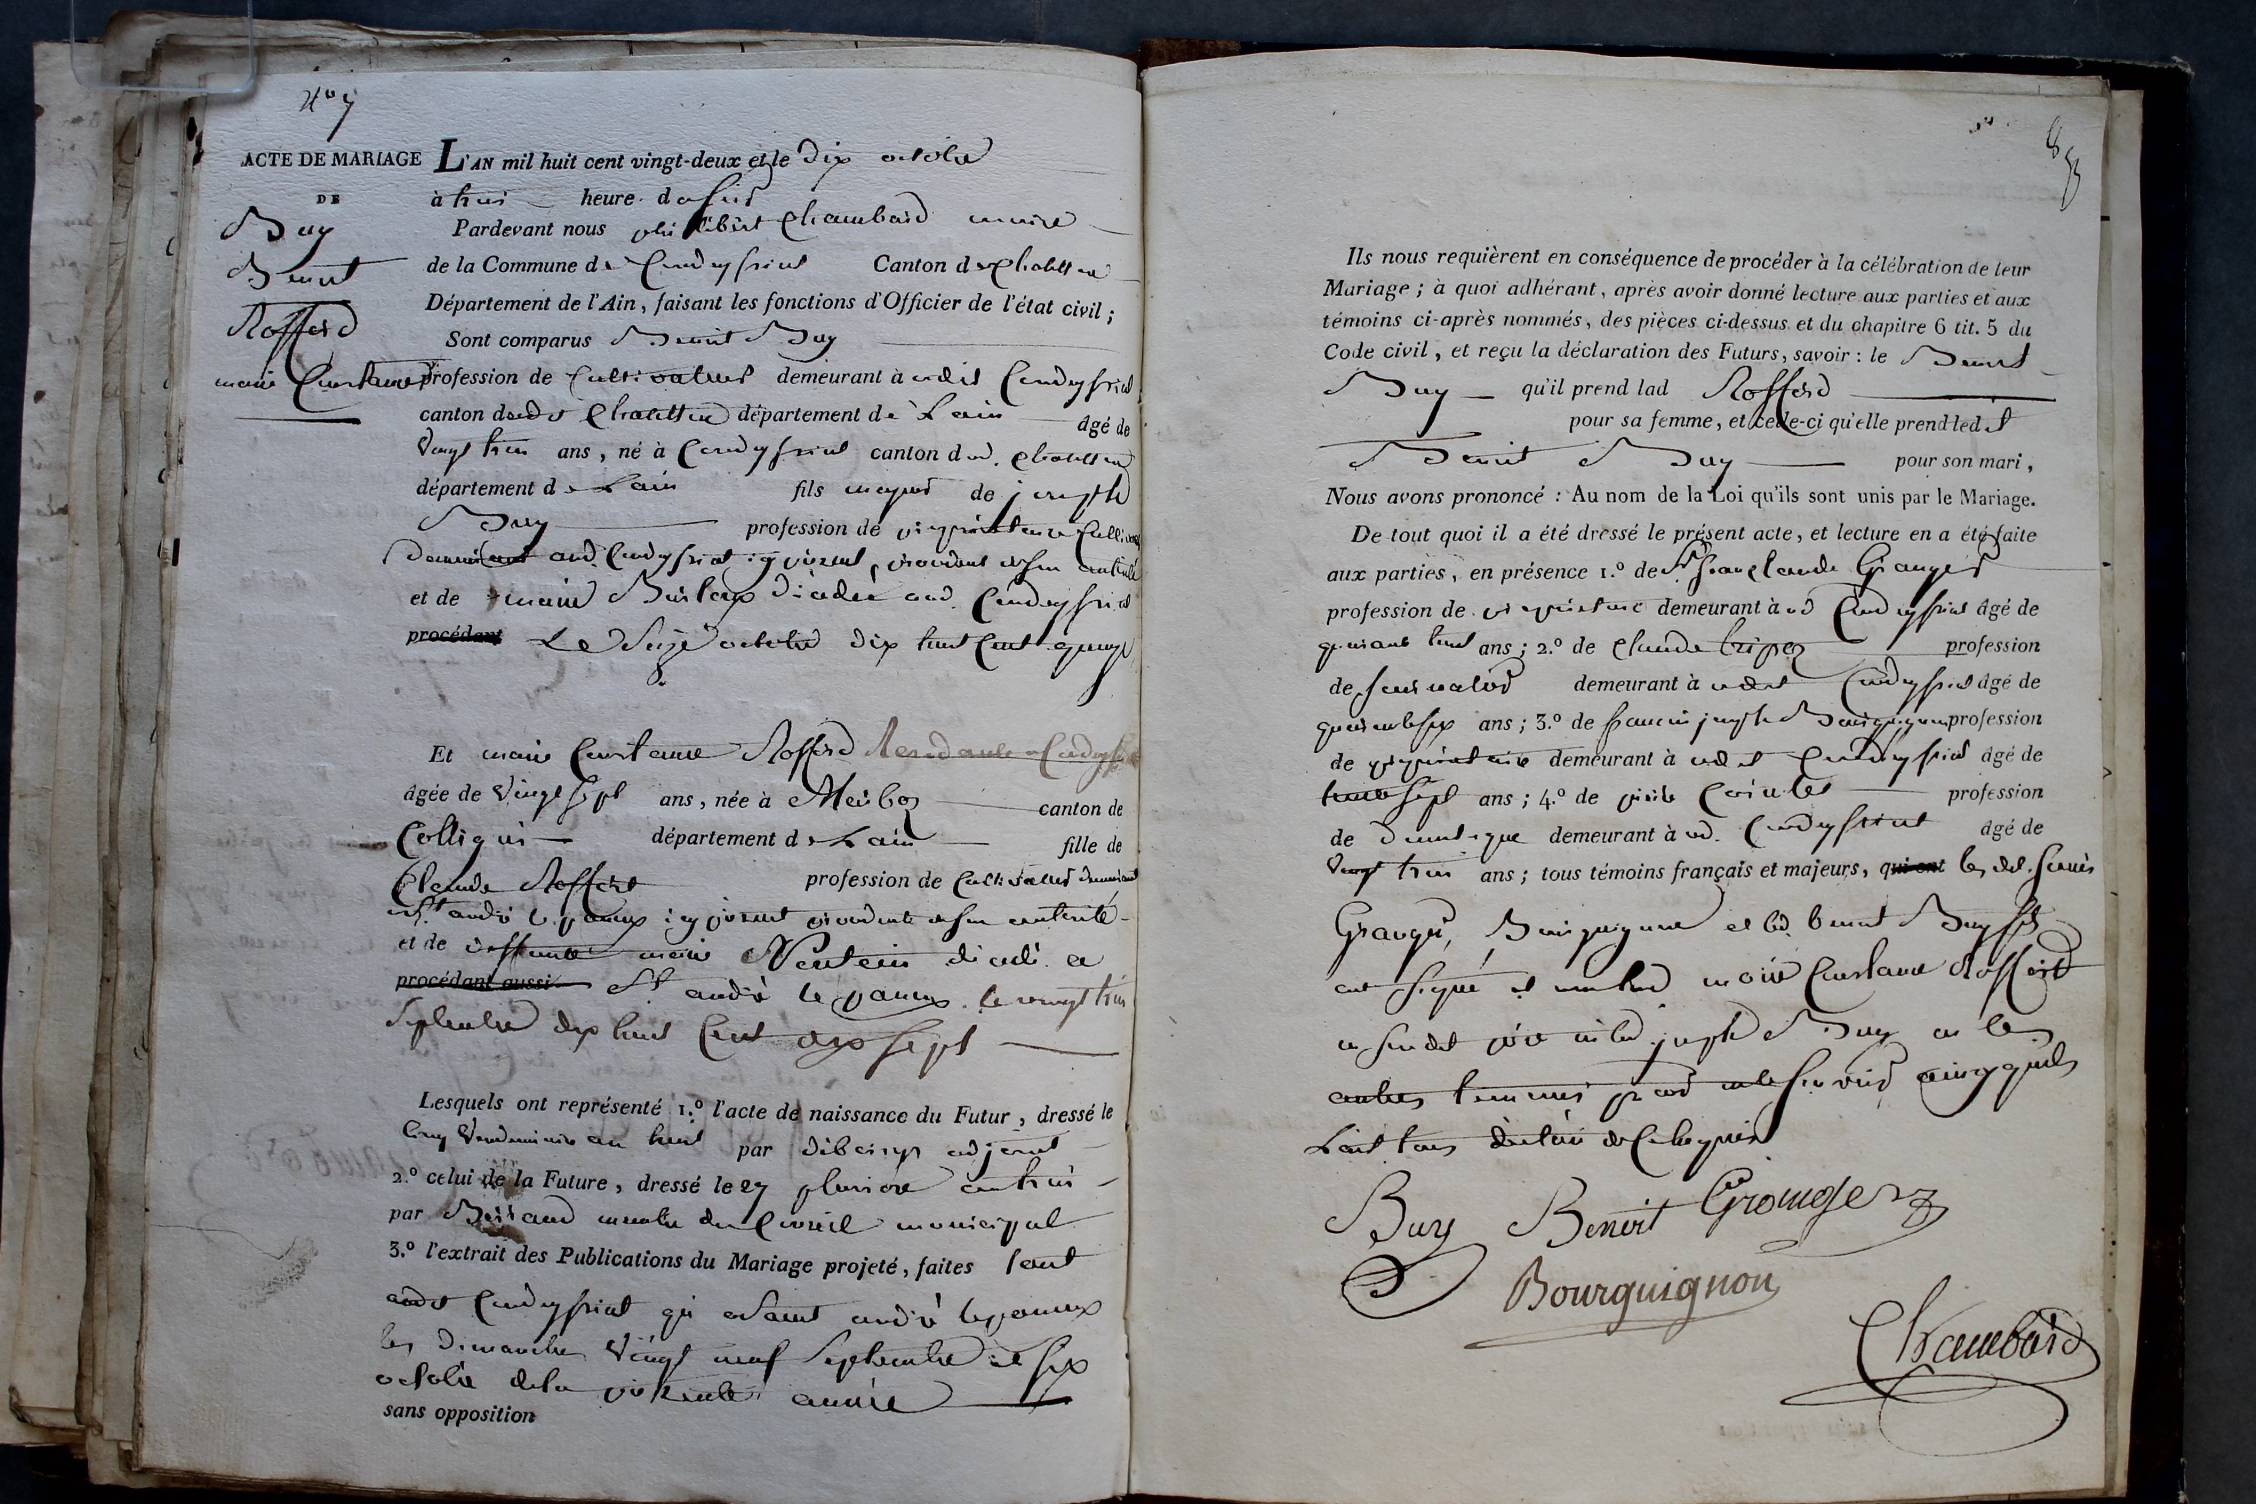 N° 7
ACTE DE MARIAGE
DE
Buy
Benoit
Rofferd
marie Constance
L'AN mil huit cent vingt-deux et le dix octobre
à trois heure du soir
Pardevant nous philibert Chambard maire
de la Commune de Condeyssiat Canton de Chatillon
Département de l'Ain, faisant les fonctions d'Officier de l'état civil;
Sont comparus Benoit Buy
profession de Cultivateur demeurant à audit Condeyssiat
canton dudit Chatillon département de Lain âgé de
vingt trois ans, né à Condeyssiat canton dud. Chatillon
département de Lain fils majeur de joseph
Buy profession de propriétaire Cultivateur
demeurant aud. Condeyssiat icy présent, procédant de son autorité
et de marie décédée aud. Condeyssiat
procédant Le Seize octobre dix huit Cent quinze
Et marie Constance Rofferd Residante a Condeyssiat
âgée de vingt sept ans, née à Meilloz canton de
Colligni département de Lain fille de
Claude Rofferd profession de Cultivateur demeurant
a St. andré le panoux icy présent procédante de son autorité
et de deffunte marie décédée a
procédant aussi St andré le panoux le vingt trois
Septembre dix huit Cent dix sept
Lesquels ont représenté 1.º l'acte de naissance du Futur, dressé le
Cinq Vendemiaire an huit par adjoint
2.º celui de la Future, dressé le 27 pluviose an trois
par membre du Conseil municipal
3.º l'extrait des Publications du Mariage projeté, faites tant
audit Condeyssiat qu'a Saint andré le panoux
les dimanches vingt neuf Septembre et six
octobre de la présente année
sans opposition
83
Ils nous requièrent en conséquence de procéder à la célébration de leur
Mariage; à quoi adhérant, après avoir donné lecture aux parties et aux
témoins ci-après nommés, des pièces ci-dessus et du chapitre 6 tit. 5 du
Code civil, et reçu la déclaration des Futurs, savoir : le Benoit
Buy qu'il prend lad Rofferd
pour sa femme, et celle-ci qu'elle prend ledit
Benoit Buy pour son mari,
Nous avons prononcé : Au nom de la Loi qu'ils sont unis par le Mariage.
De tout quoi il a été dressé le présent acte, et lecture en a été faite
aux parties, en présence 1.º de Sr jean claude Granger
profession de propriétaire demeurant à ud Condeyssiat âgé de
quarante huit ans; 2.º de Claude profession
de demeurant à udit Condeyssiat âgé de
quarante six ans; 3.º de francois joseph Bourguignon profession
de propriétaire demeurant à udit Condeyssiat âgé de
trente sept ans; 4.º de profession
de domestique demeurant à ud. Condeyssiat âgé de
vingt trois ans; tous témoins français et majeurs, qui ont les dits sieurs
Granger, Bourguignon et led. benoit Buy fils
ont signé et non lad marie Constance Rofferd
ni sondit père ni led. joseph Buy ni les
autres temoins pour ne le savoir ainsy qu'ils
l'ont tous déclaré de ce requis
Buy Benoit Grangerz
Bourguignon
Chambard